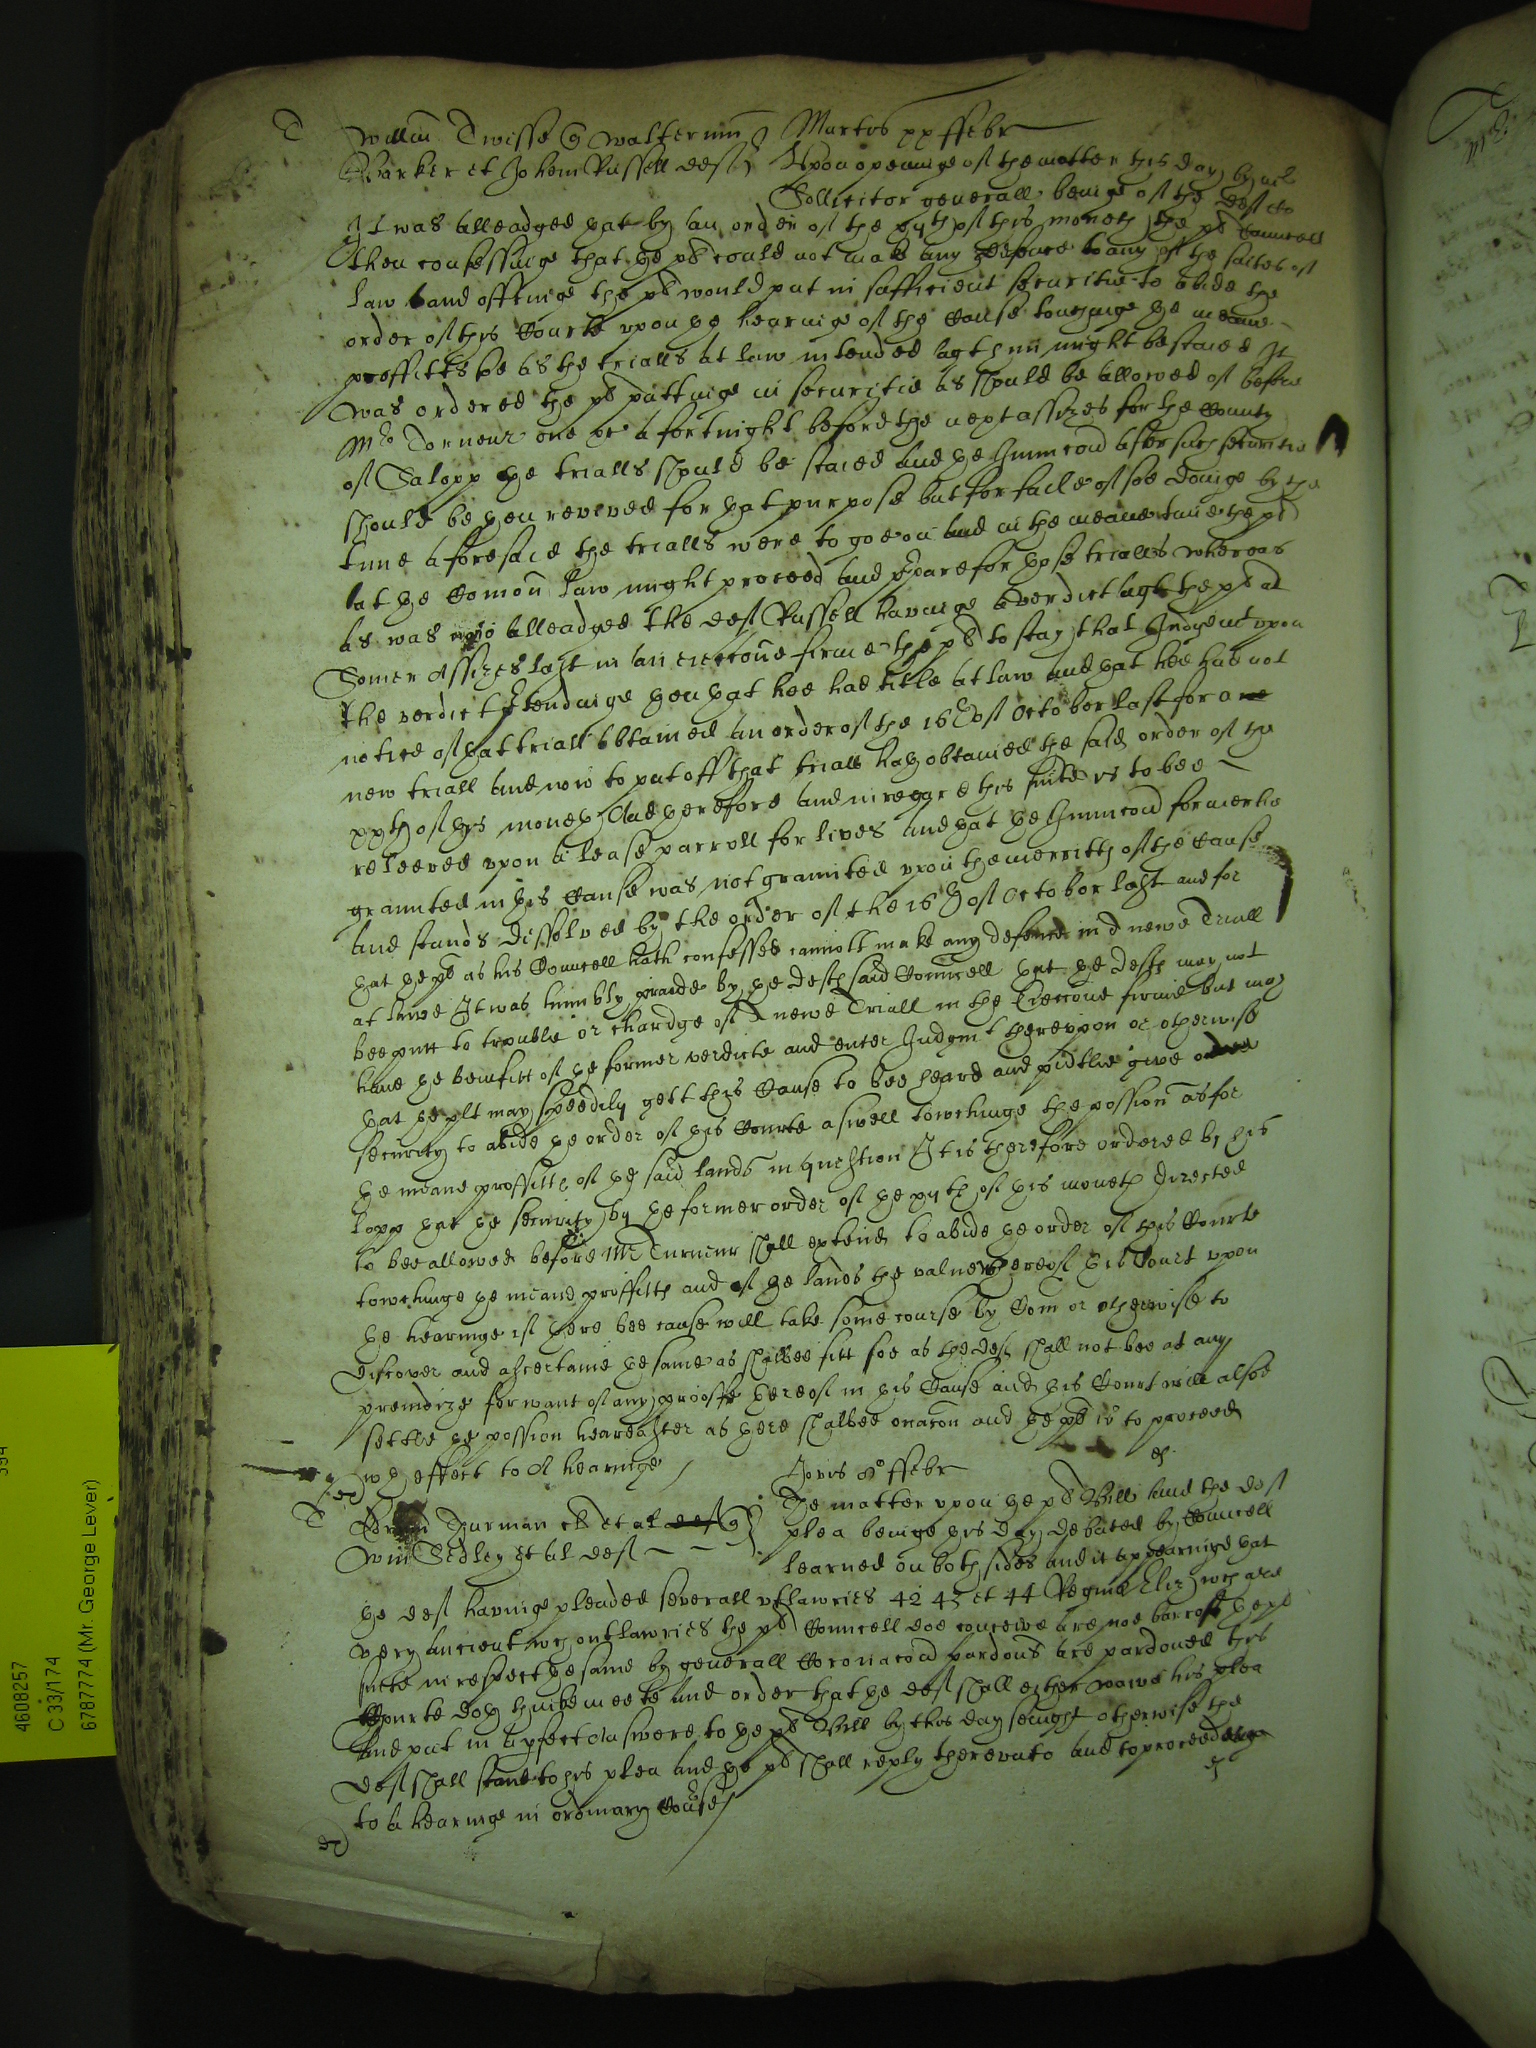 T Willm Twisse q Walterum Martis xx ffebr
Barker et Johem Russell deft Upon openinge of the matter this day by mr
Sollicitor generall beinge of the deft Co
It was alleadged that by an order of the xijth of this moneth the pl Councell
then confessinge that he pl could not make any defence to any of the suites of
law and offringe the pl would put in sufficient securitie to abide the
order of this Courte upon the hearinge of the Cause touchinge the meane
proffitts soe as the trialls at law intended agt him might be staied It
was ordered the pl puttinge in securitie as should be allowed of before
Mr Tornour one of a fortnight before the next assizes for the County
of Salopp the trialls should be staied and the Iniunccon after such securitie
should be then revived for that purpose but for faile of soe doinge by the
time aforesaid the trialls were to goe on and in the meane time the pl
at the Comon law might proceed and pparefor those trialls whereas
as was now alleadged the deft Russell havinge a verdict agt the pl at
Somer Assizes last in an eieccone firme the pl to stay that Judgemt upon
the verdict ptendinge then that hee had title at law and that hee had not
notice of that triall obtained an order of the 16th of October last for a
new triall and now to put off that triall hath obtained the said order of the
xxth of this moneth And therefore and in regard this suite is to bee
releeved upon a lease parroll for lives and that the Iniunccon formerlie
graunted in this Cause was not graunted upon the merritts of the Cause
and stands dissolved by the order of the 16th of October last and for
that the pl as his Councell hath confessed cannott make any defence in a newe Triall
at lawe It was humbly praide by the defts said Councell that the defts may not
bee putt to trouble or chardge of a newe Triall in the Eieccone firme but may
have the benifitt of the former verdicte and enter Judgmt thereupon or otherwise
that the plt may speedily gett this Cause to bee heard and pntlie give
security to abide the order of this Courte aswell towchinge the possion as for
the meane proffitts of the said lands in question It is therefore ordered by this
Lopp that the security by the former order of the xijth of this moneth directed
to bee allowed before Mr Turnour shall extend to abide the order of this Courte
towchinge the meane proffitts and of the lands the value whereof this Court upon
the hearinge if there bee cause will take some course by Com or otherwise to
discover and ascertaine the same as shalbee fitt soe as the deft shall not bee at any
preiudize for want of any prooffe thereof in this Cause and this Court will alsoe
settle the possion heareafter as there shalbee occacon and the pl is to proceed
wth effect to A hearinge
T Jovis ffebr
The matter upon the pl Bill and the deft
Turman et al q
Wm Sedley et al deft plea beinge this day debated by Councell
learned on both sides and it appearinge that
the deft havinge pleaded severall utlawries 42 43 et 44 Regine Eliz wch are
very auncient wch outlawries the pl Councell doe conceive are noe barr of the pl
suite in respect the same by generall Coronacon pardons are pardoned This
Courte doth thinke meete and order that the deft shall either waive his plea
and put in a pfect answere to the pl Bill by this day seavnight otherwise the
deft shall stand to his plea and the pl shall reply thereunto and to proceed
to a hearinge in ordinary Course
4608257
C 33/174
6787774 (Mr. George Lever)